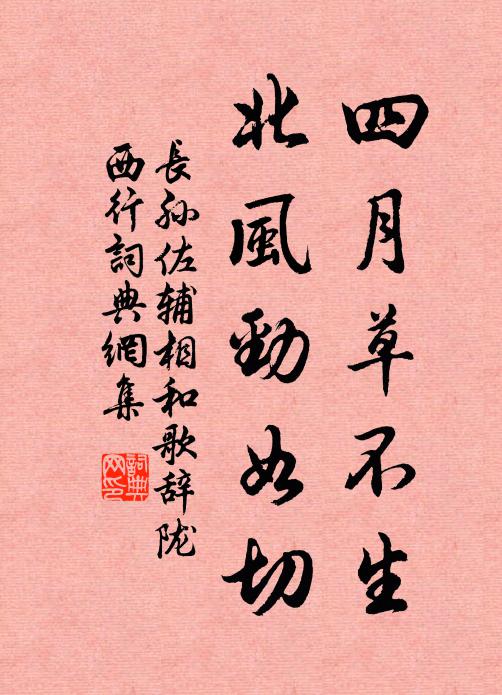 四月草不生
北風勁如切
長孙佐辅相和歌辞陇
西行詞典網集
詞典
网印